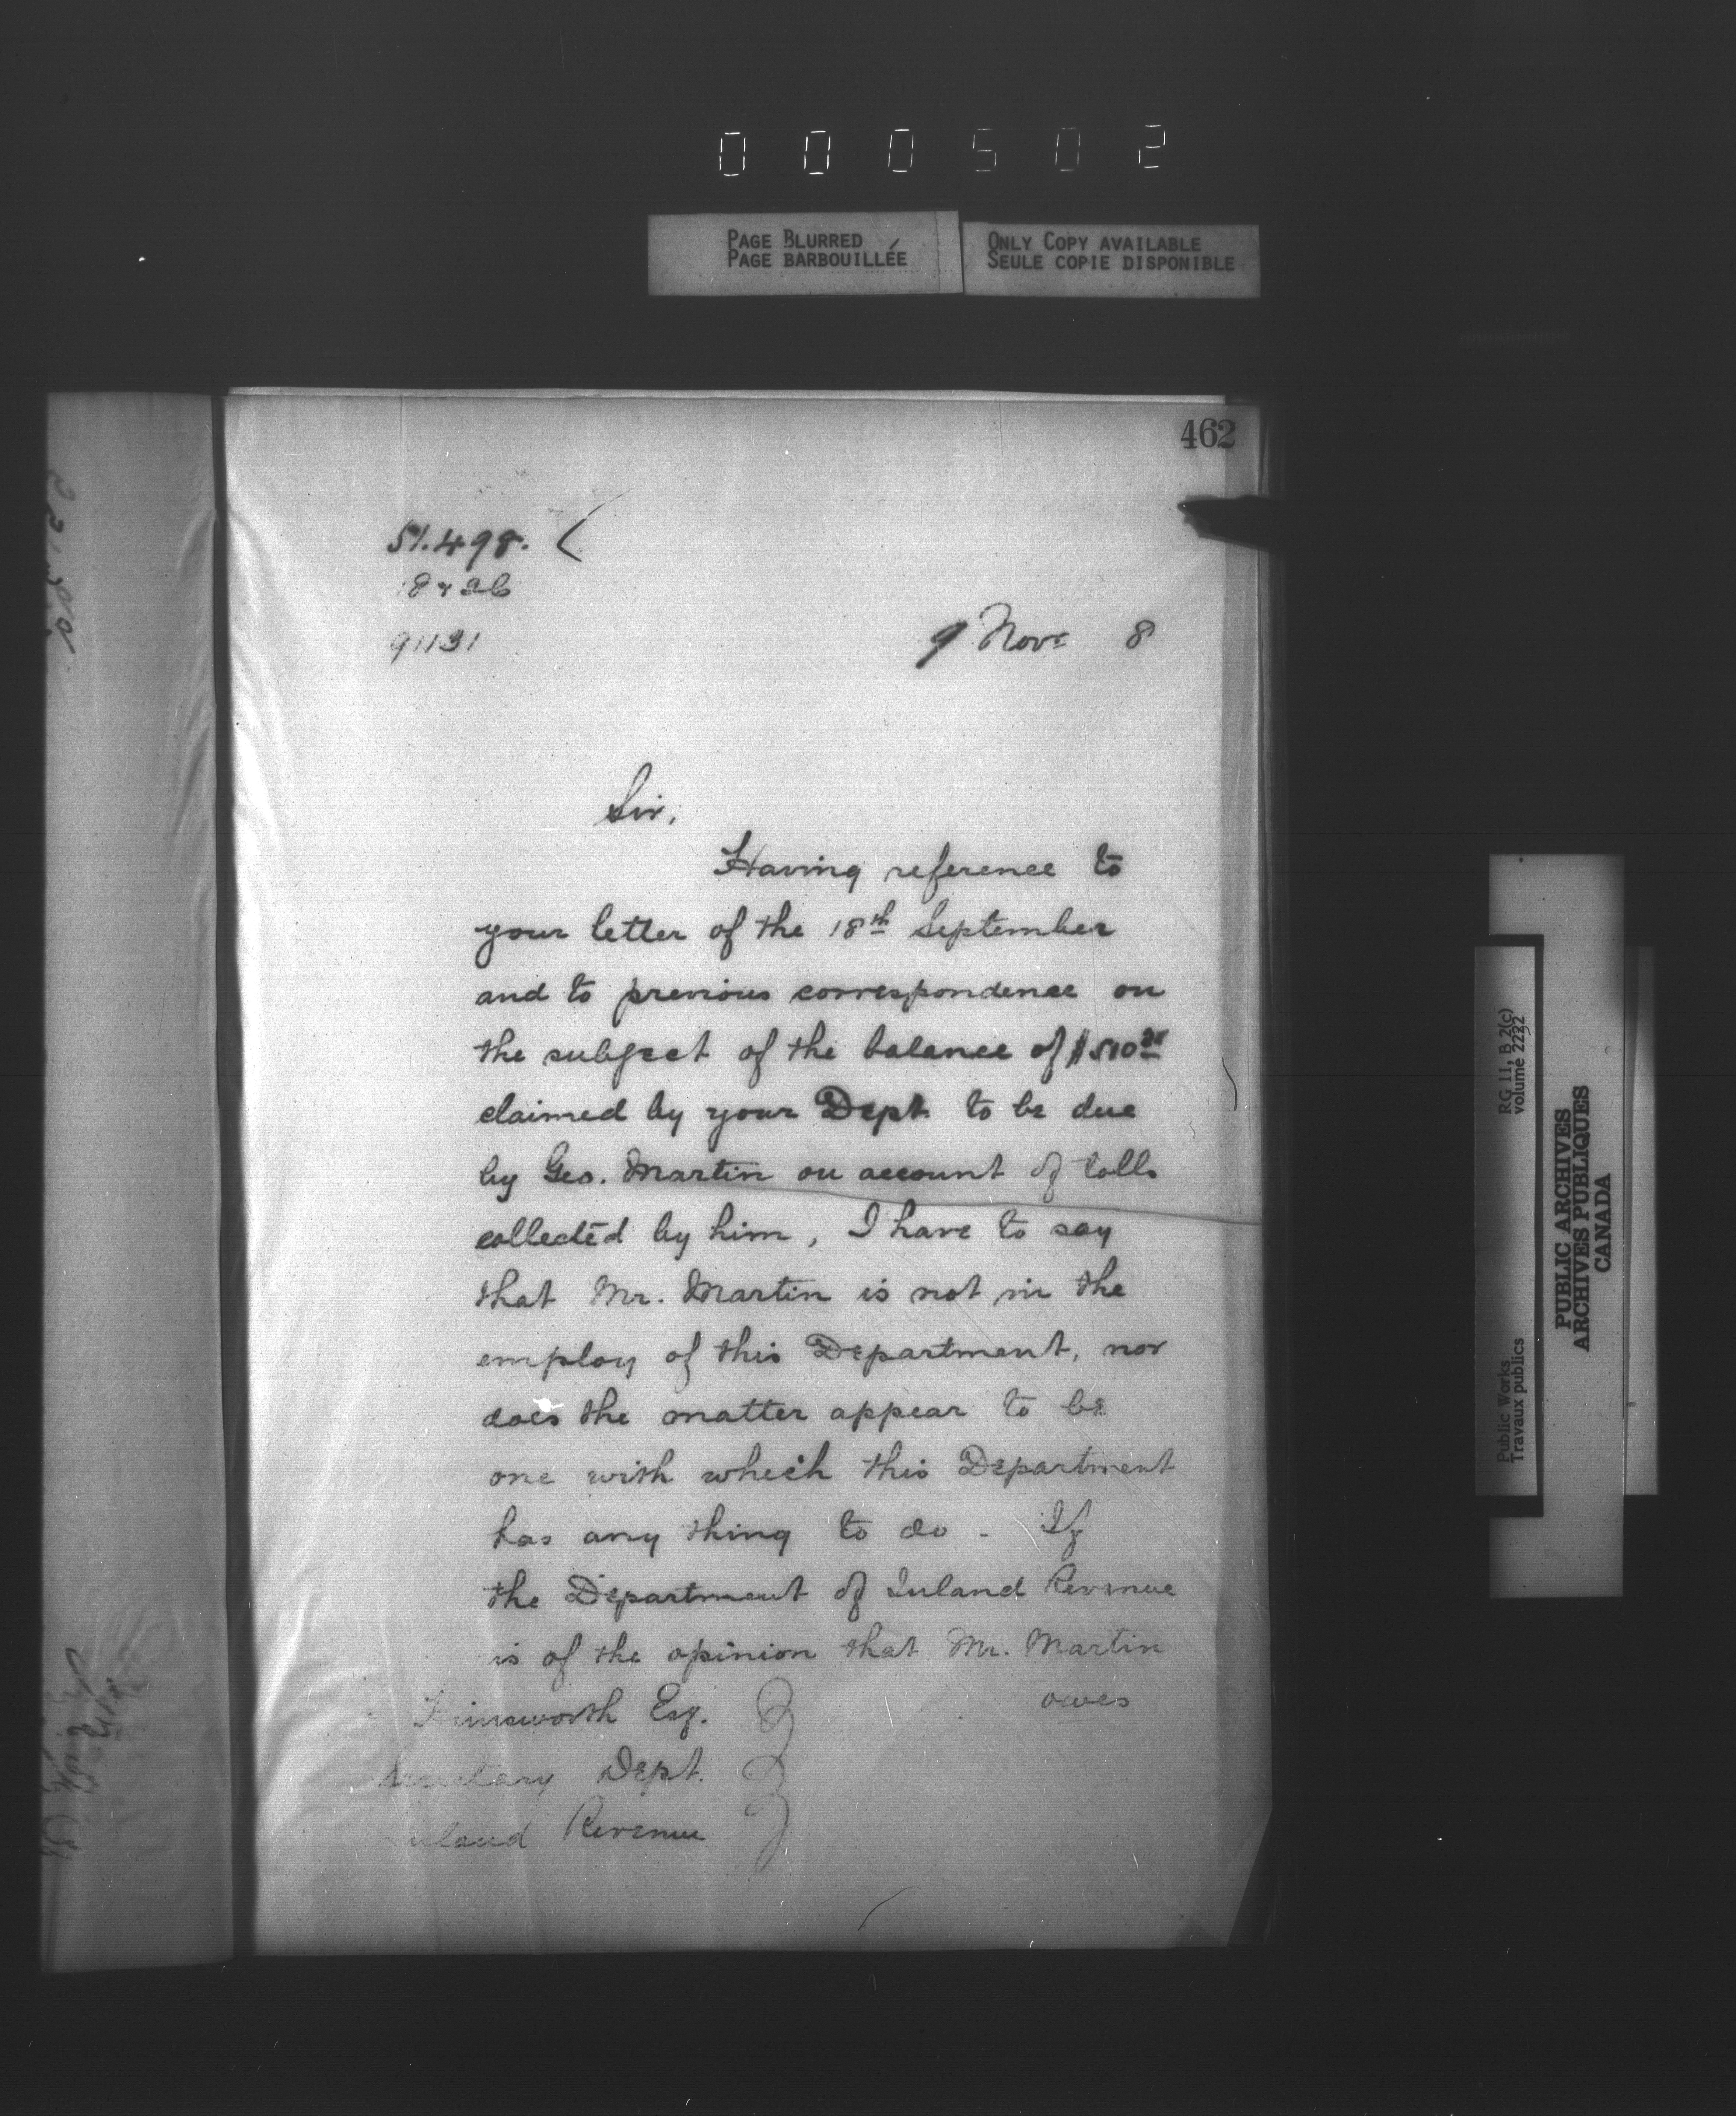 000502
PAGE BLURRED
PAGE BARBOUILLÉE
ONLY COPY AVAILABLE
SEULE COPIE DISPONIBLE
462
51.498.
91131
9 Novr 8
Sir,
Having reference to
your letter of the 18th September
and to previous correspondence on
the subject of the balance of $510
claimed by your Dept. to be due
by Geo. Martin on account of tolls
collected by him, I have to say
that Mr. Martin is not in the
employ of this Department, nor
does the matter appear to be
one with which this Department
has any thing to do - If
the Department of Inland Revenue
is of the opinion that Mr. Martin
owes
Himsworth Esq.
Secretary Dept.
Inland Revenue
RG 11, B 2(c)
volume 2232
Public Works
Travaux publics
PUBLIC ARCHIVES
ARCHIVES PUBLIQUES
CANADA